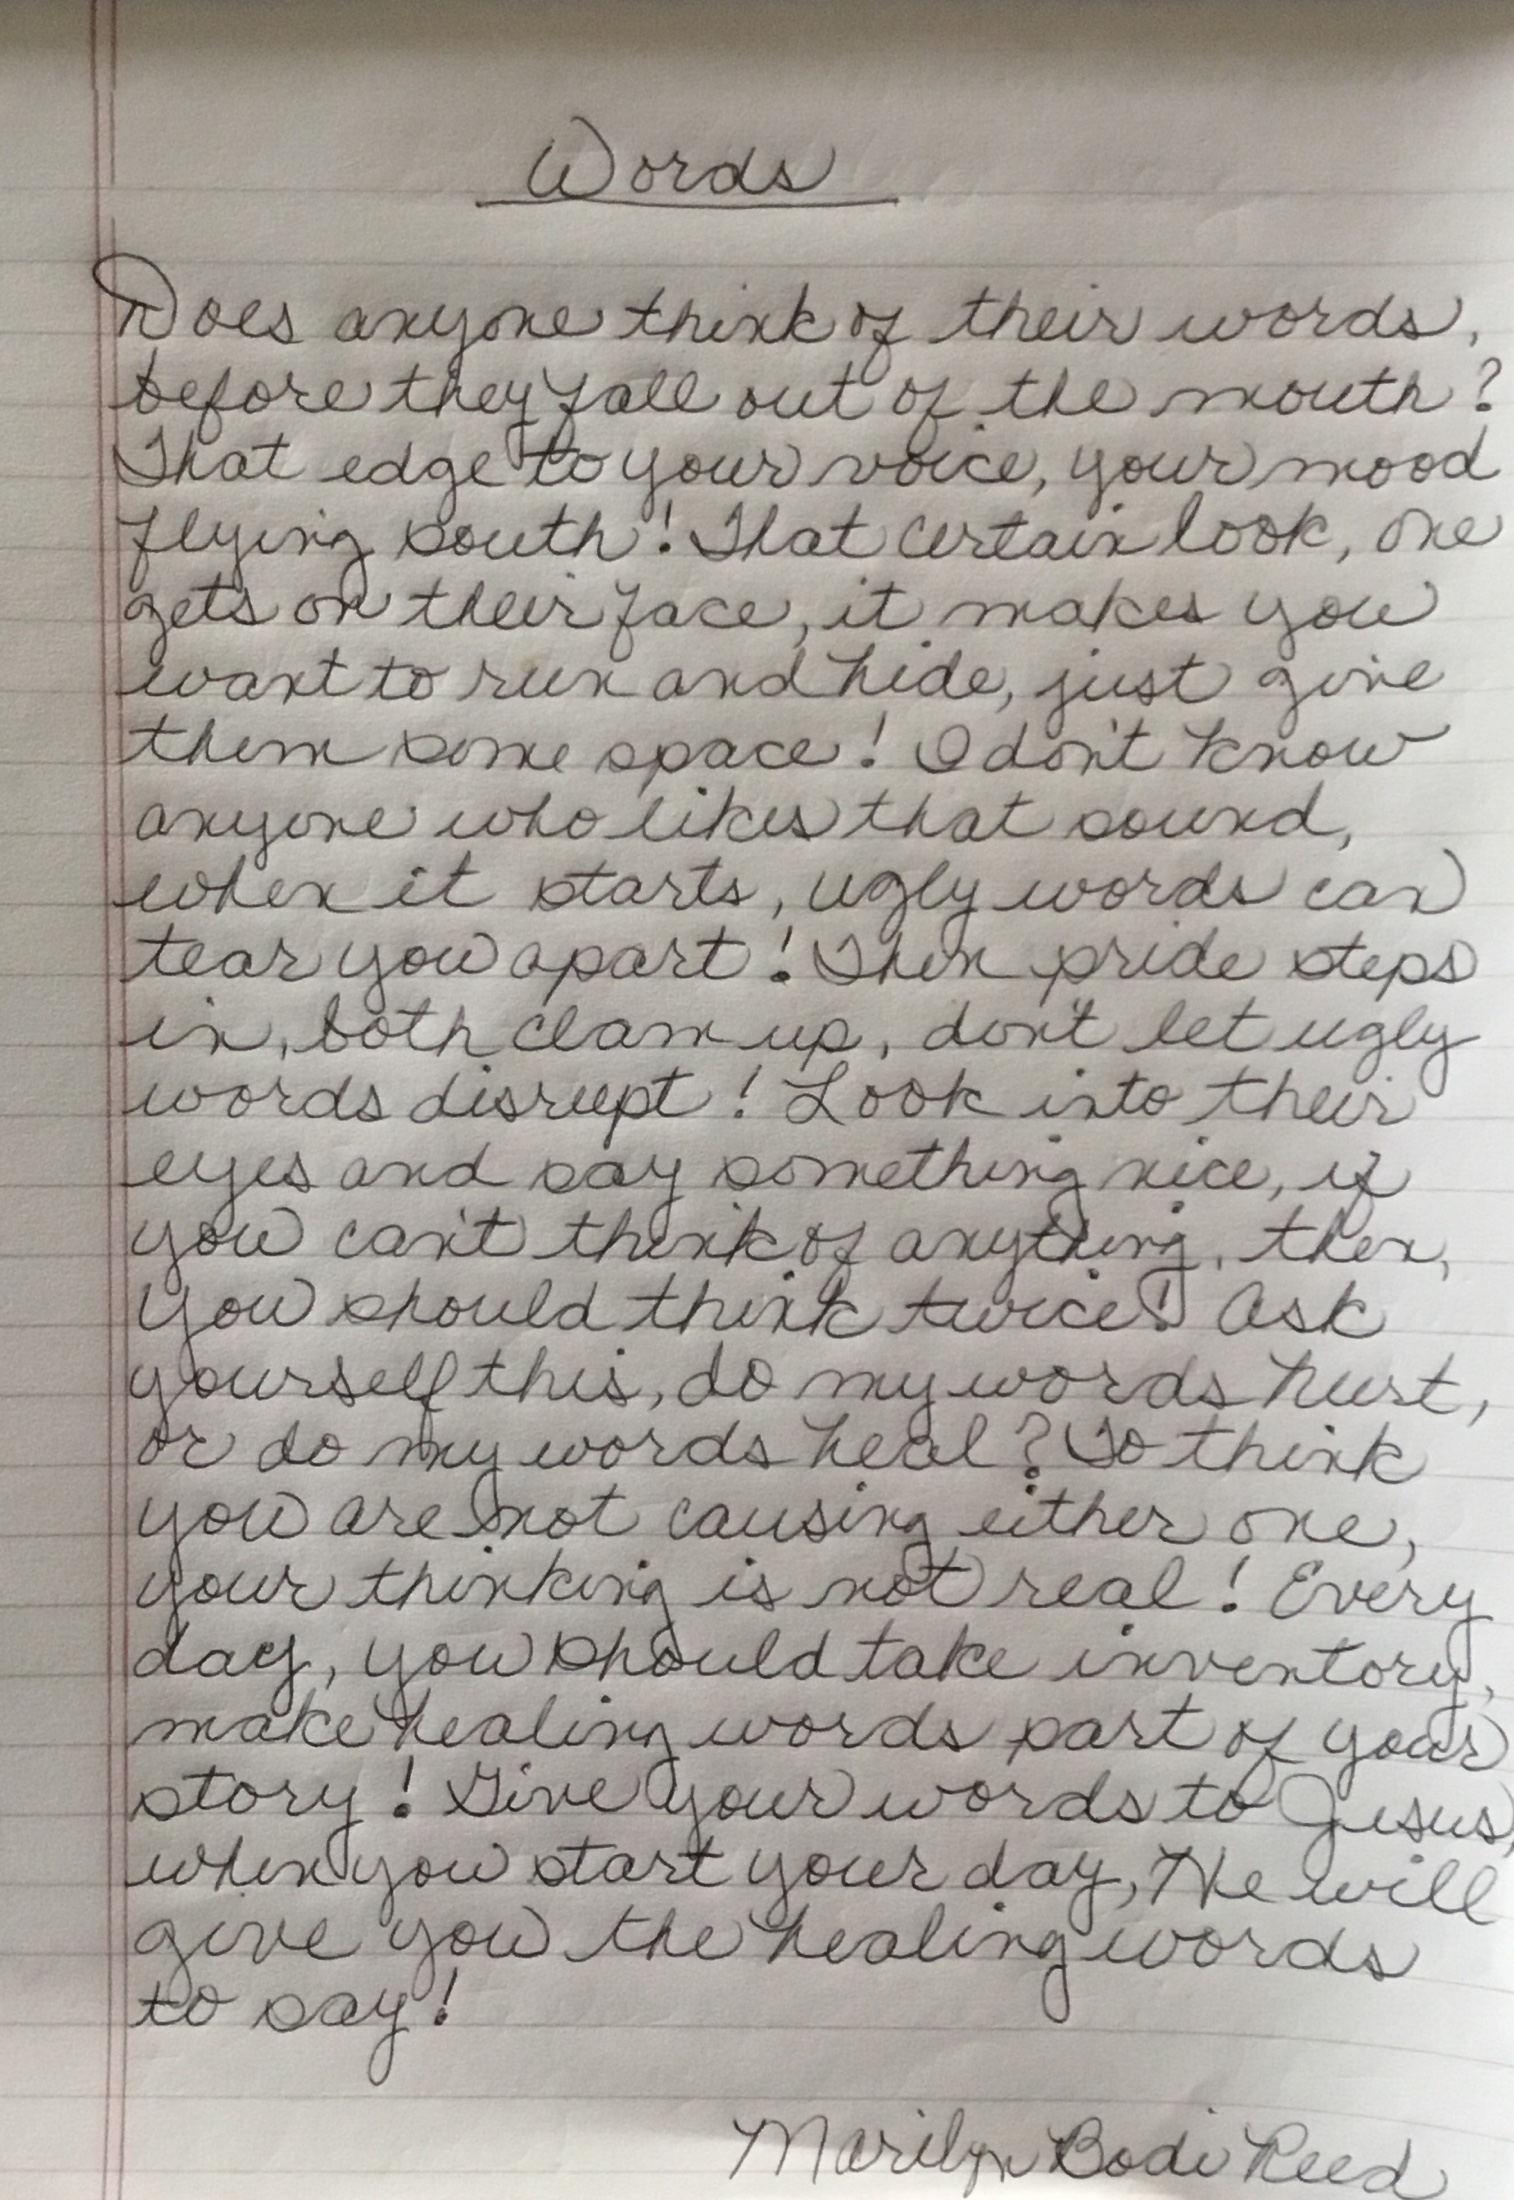 Words
Does anyone think of their words,
before they fall out of the mouth?
That edge to your voice, your mood
flying south! That certain look, one
gets on their face, it makes you
want to run and hide, just give
them some space! I don't know
anyone who likes that sound,
when it starts, ugly words can
tear you apart! Then pride steps
in, both clam up, don't let ugly
words disrupt! Look into their
eyes and say something nice, if
you can't think of anything, then,
you should think twice! Ask
yourself this, do my words hurt,
or do my words heal? To think
you are not causing either one,
your thinking is not real! Every
day, you should take inventory,
make healing words part of your
story! Give your words to Jesus,
when you start your day, He will
give you the healing words
to say!
Marilyn Bodi Reed